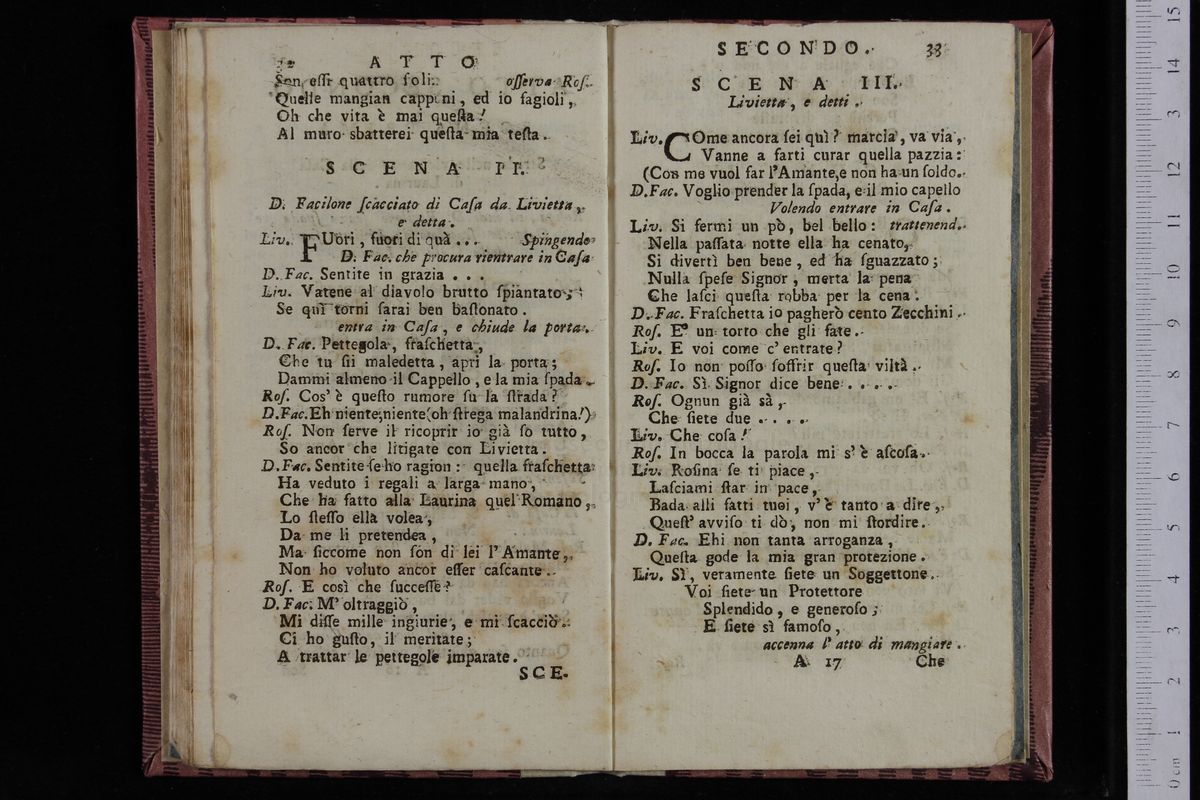 ATTO
Son essi quattro soli. osserva Ros.
Quelle mangian capponi, ed io fagioli,
Oh che vita è mai questa!
Al muro sbatterei questa mia testa.
SCENA II.
D. Facilone scacciato di Casa da Livietta,
e detta.
Liv. FUori, fuori di quà... Spingendo
D. Fac. che procura rientrare in Casa
D. Fac. Sentite in grazia...
Liv. Vatene al diavolo brutto spiantato;
Se quì torni sarai ben bastonato.
entra in Casa, e chiude la porta.
D. Fac. Pettegola, fraschetta,
Che tu sii maledetta, apri la porta;
Dammi almeno il Cappello, e la mia spada.
Ros. Cos' è questo rumore su la strada?
D.Fac. Eh niente, niente (oh strega malandrina!)
Ros. Non serve il ricoprir io già so tutto,
So ancor che litigate con Livietta.
D.Fac. Sentite se ho ragion: quella fraschetta
Ha veduto i regali a larga mano,
Che ha fatto alla Laurina quel Romano,
Lo stesso ella volea,
Da me li pretendea,
Ma siccome non son di lei l' Amante,
Non ho voluto ancor esser cascante.
Ros. E così che successe?
D. Fac. M' oltraggiò,
Mi disse mille ingiurie, e mi scacciò.
Ci ho gusto, il meritate;
A trattar le pettegole imparate.
SCE-
SECONDO. 33
SCENA III.
Livietta, e detti.
Liv. COme ancora sei quì? marcia, va via,
Vanne a farti curar quella pazzia:
(Con me vuol far l'Amante, e non ha un soldo.
D.Fac. Voglio prender la spada, e il mio capello
Volendo entrare in Casa.
Liv. Si fermi un pò, bel bello: trattenend.
Nella passata notte ella ha cenato,
Si divertì ben bene, ed ha sguazzato;
Nulla spese Signor, merta la pena
Che lasci questa robba per la cena.
D. Fac. Fraschetta io pagherò cento Zecchini.
Ros. E' un torto che gli fate.
Liv. E voi come c' entrate?
Ros. Io non posso soffrir questa viltà.
D. Fac. Sì Signor dice bene....
Ros. Ognun già sà,
Che siete due.....
Liv. Che cosa!
Ros. In bocca la parola mi s' è ascosa.
Liv. Rosina se ti piace,
Lasciami star in pace,
Bada alli fatti tuoi, v' è tanto a dire,
Quest' avviso ti dò, non mi stordire.
D. Fac. Ehi non tanta arroganza,
Questa gode la mia gran protezione.
Liv. Sì, veramente siete un Soggettone.
Voi siete un Protettore
Splendido, e generoso;
E siete sì famoso,
accenna l' atto di mangiare.
A 17 Che
0 cm 1 2 3 4 5 6 7 8 9 10 11 12 13 14 15